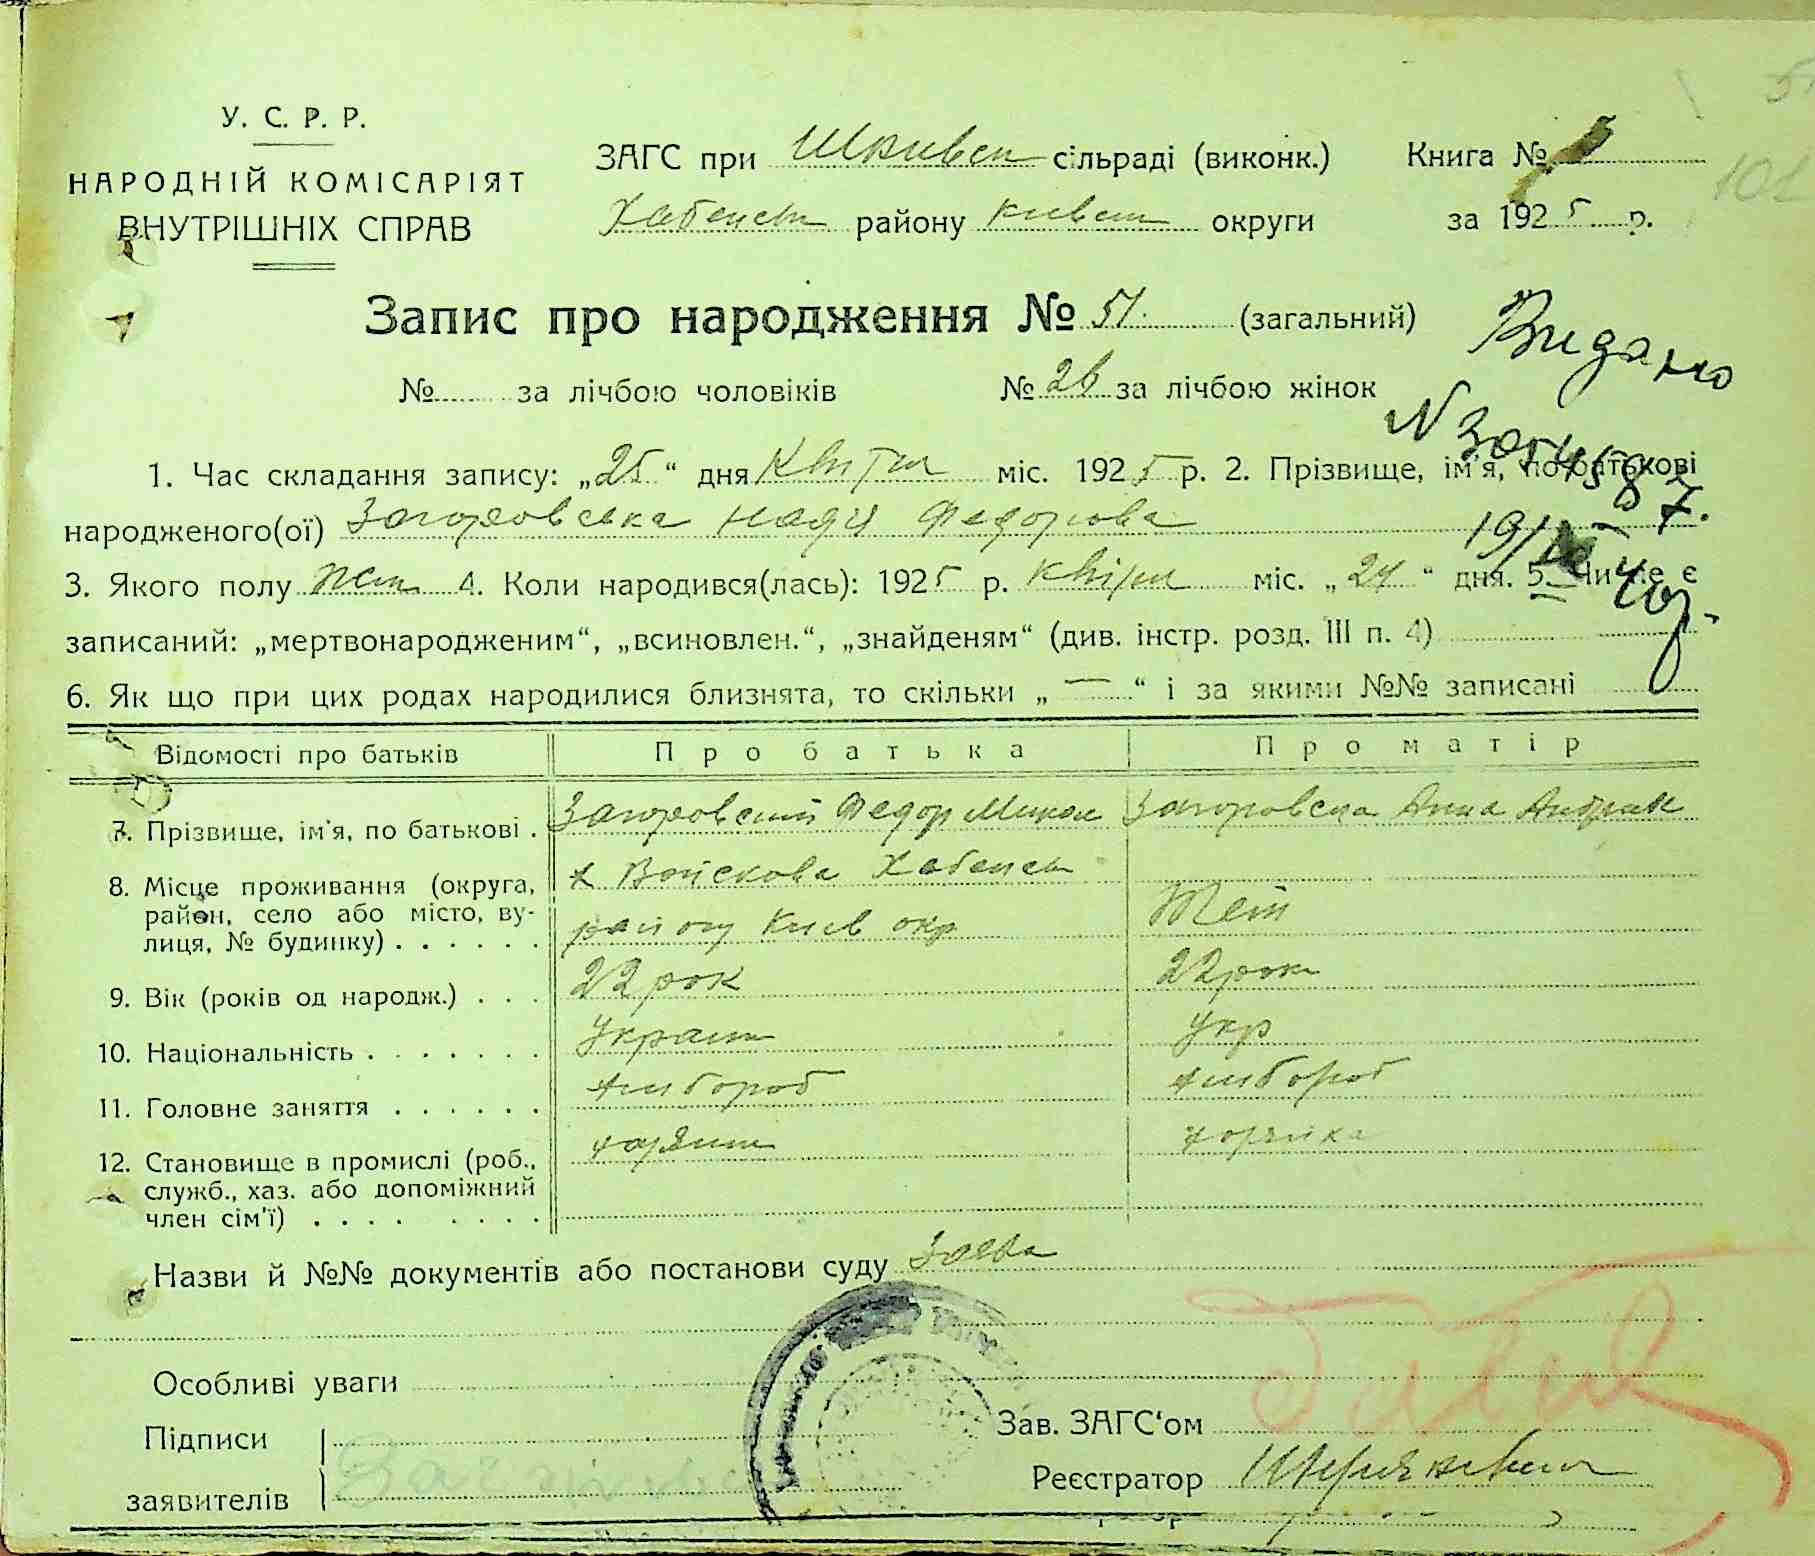 У. С. Р. Р.
НАРОДНІЙ КОМІСАРІЯТ
ВНУТРІШНІХ СПРАВ
ЗАГС при сільраді (виконк.)
Хабенськ району Київськ округи
Книга №
за 1925 р.
Запис про народження № 51. (загальний)
№ за лічбою чоловіків № 26 за лічбою жінок
Видано
1. Час складання запису: „25“ дня Квітня міс. 1925 р. 2. Прізвище, ім'я, по батькові
народженого(ої) Загоровська Надія Федорова
3. Якого полу жін 4. Коли народився(лась): 1925 р. квітня міс. „24“ дня. 5. Чи не є
записаний: „мертвонародженим“, „всиновлен.“, „знайденям“ (див. інстр. розд. III п. 4)
6. Як що при цих родах народилися близнята, то скільки „—“ і за якими №№ записані
Відомості про батьків Про батька Про матір
7. Прізвище, ім'я, по батькові . Загоровский Федор Микол Загоровська Анна Андрія
8. Місце проживання (округа, район, село або місто, вулиця, № будинку) . . . . . . х Войскова Хабенськ
району Київ окр
9. Вік (років од народж.) . . . 22 рок 22 рок
10. Національність . . . . . . . Україн Укр
11. Головне заняття . . . . . . хлібороб хлібороб
12. Становище в промислі (роб., служб., хаз. або допоміжний член сім'ї) . . . . . . . .
Назви й №№ документів або постанови суду Заява
Особливі уваги
Підписи
заявителів
Зав. ЗАГС'ом
Реєстратор